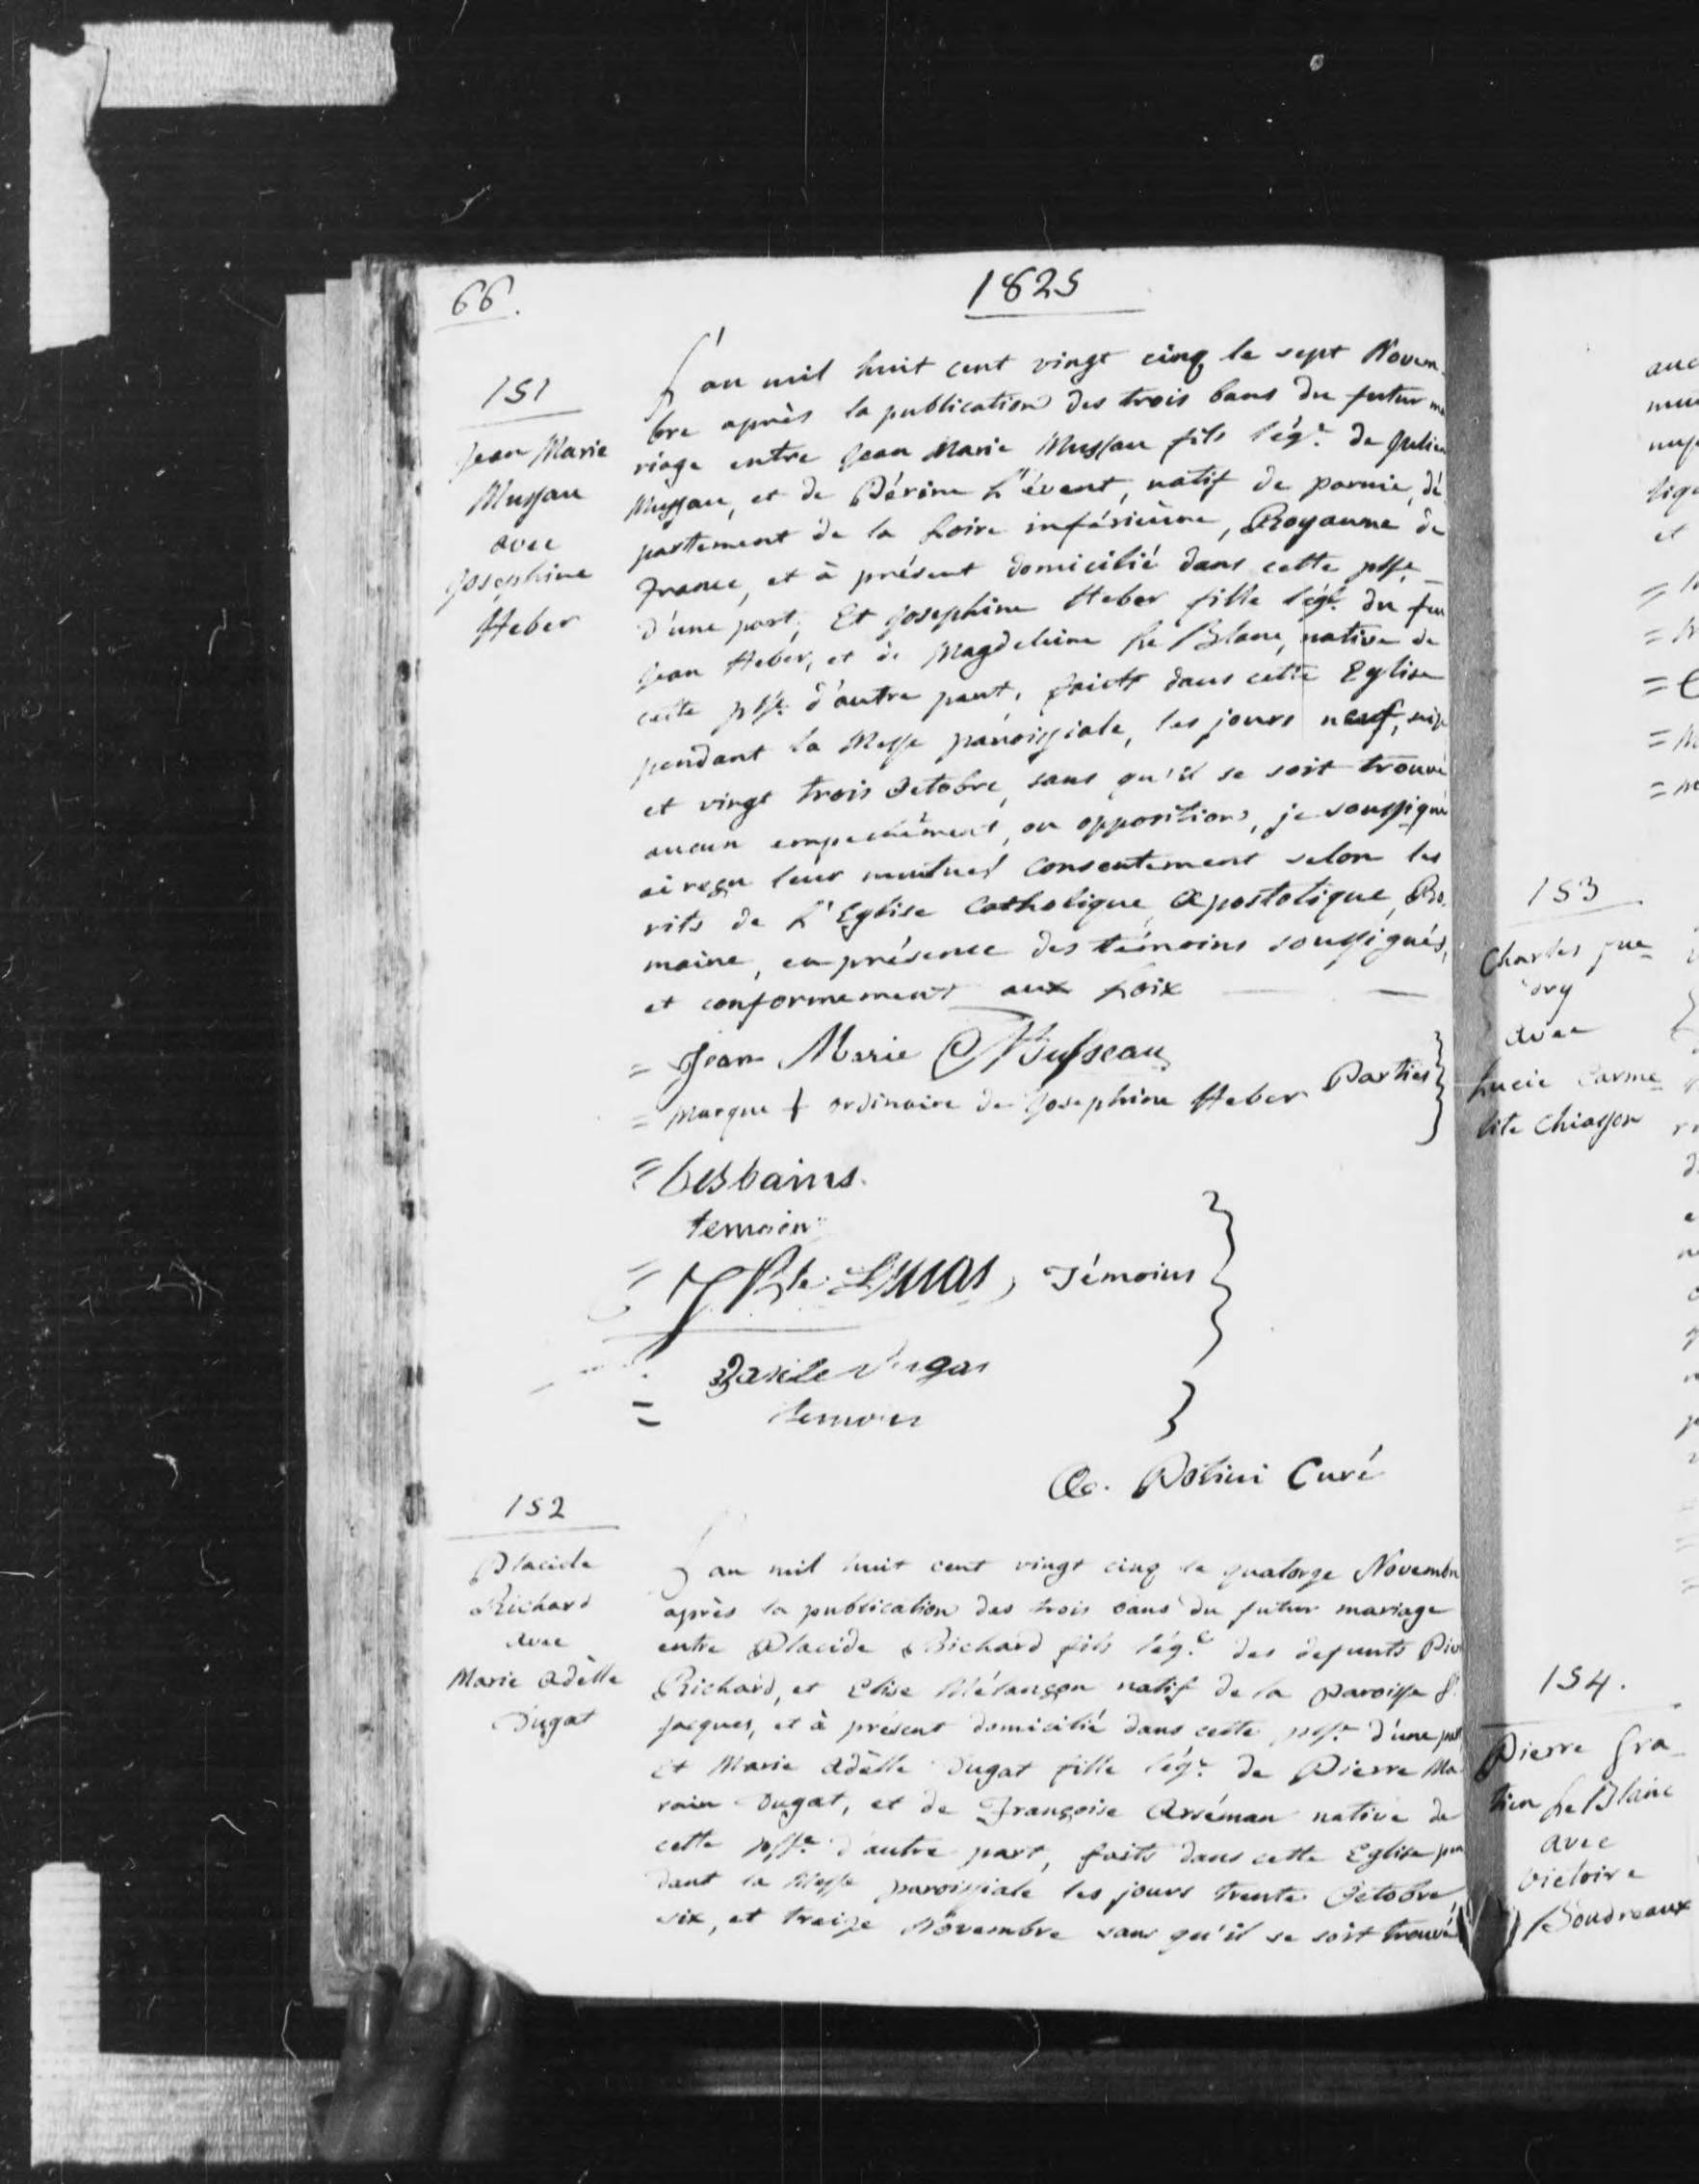 66.
1825
151
Jean Marie
Mussau
avec
Josephine
Heber
L'an mil huit cent vingt cinq le sept Novem-
bre après la publication des trois bans du futur ma
riage entre Jean Marie Mussau fils lég.e de Julien
Mussau, et de Périne L'évent, natif de pornic, dé
partement de la Loire inférieure, Royaume de
France, et à présent domicilié dans cette psse.
d'une part, Et Josephine Heber fille légt. du feu
Jean Heber, et de Magdeleine Le Blanc, native de
cette psse. d'autre part, faicts dans cette Eglise
pendant la Messe paroissiale, les jours neuf,
et vingt trois Octobre, sans qu'il se soit trouvé
aucun empechément, ou opposition, je soussigné
ai reçu leur mutuel consentement selon les
rits de L'Eglise Catholique, Apostolique, Ro.
maine, en présence des témoins soussignés,
et conformement aux Loix
= Jean Marie Musseau
= Marque + ordinaire de Josephine Heber Parties
= besbains.
temoin
= J Bte. Lucas, Témoins
Basile Dugas
= temoin
A. Potini Curé
152
Placide
Richard
avec
Marie Adèlle
Dugat
L'an mil huit cent vingt cinq le quatorze Novembre
après la publication des trois bans du futur mariage
entre Placide Richard fils lég.e des defunts
Richard, et Elise Mélançon natif de la Paroisse St
Jacques, et à présent domicilié dans cette psse. d'une part
Et Marie Adèlle Dugat fille lég.e de Pierre Ma
rain Dugat, et de Françoise Arséman native de
cette psse. d'autre part, faits dans cette Eglise pen
dant la Messe paroissiale les jours trente Octobre
six, et treize Novembre sans qu'il se soit trouvé
153
Charles Jue
dry
avec
Lucie Carme
lite Chiasson
154.
Pierre Gra-
tien Le Blanc
avec
Victoire
Boudreaux